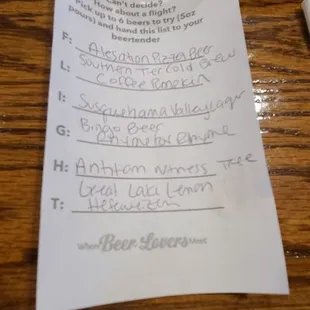 Can't decide?
How about a flight?
Pick up to 6 beers to try (5oz
pours) and hand this list to your
beertender
F: Alesation Pizza Beer
L: Southern Tier Cold Brew
Coffee Pumpkin
I: Susquehanna Valley Lager
G: Bingo Beer
Rhyme or Rhyme
H: Antitan witness Tree
Great Lake Lemon
T: Hefeweizen
Where Beer Lovers Meet